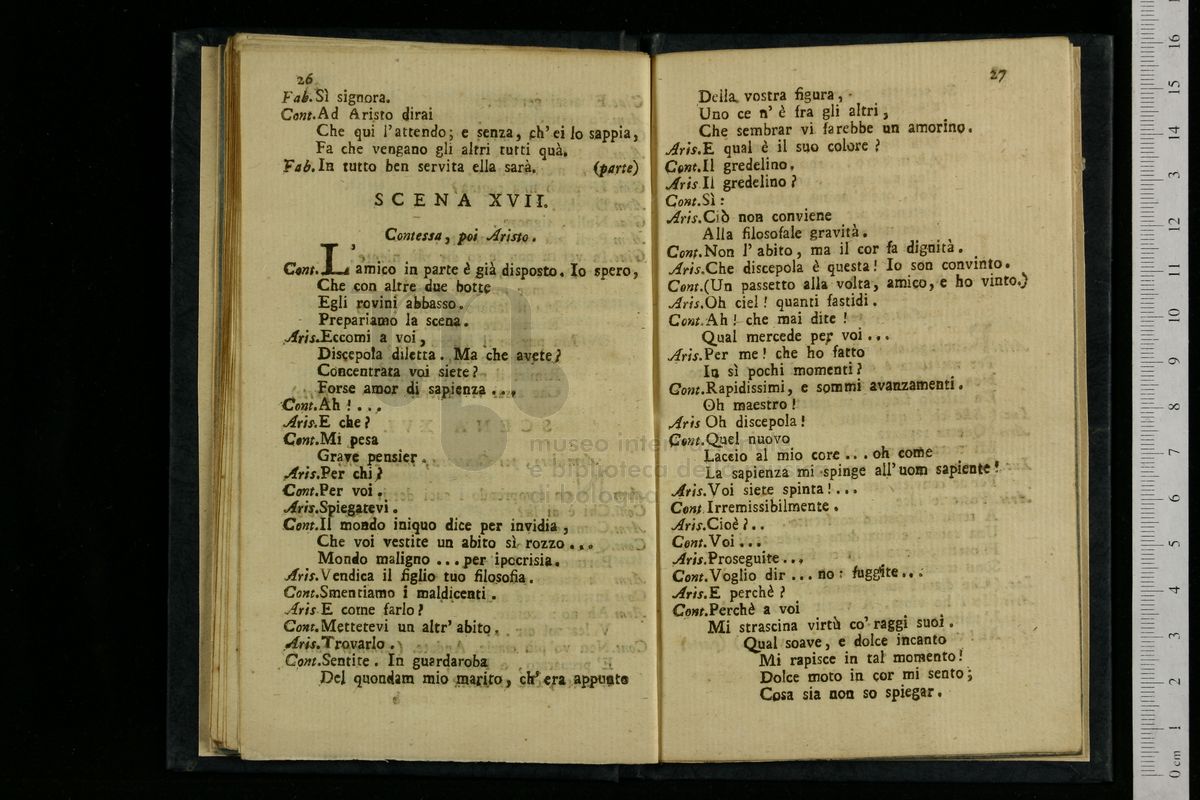 26
Fab. Sì signora.
Cont. Ad Aristo dirai
Che qui l'attendo; e senza, ch'ei lo sappia,
Fa che vengano gli altri tutti quà.
Fab. In tutto ben servita ella sarà. (parte)
SCENA XVII.
Contessa, poi Aristo.
Cont. L'amico in parte è già disposto. Io spero,
Che con altre due botte
Egli rovini abbasso.
Prepariamo la scena.
Aris. Eccomi a voi,
Discepola diletta. Ma che avete?
Concentrata voi siete?
Forse amor di sapienza....
Cont. Ah!...
Aris. E che?
Cont. Mi pesa
Grave pensier.
Aris. Per chi?
Cont. Per voi.
Aris. Spiegatevi.
Cont. Il mondo iniquo dice per invidia,
Che voi vestite un abito sì rozzo...
Mondo maligno... per ipocrisia.
Aris. Vendica il figlio tuo filosofia.
Cont. Smentiamo i maldicenti.
Aris E come farlo?
Cont. Mettetevi un altr' abito.
Aris. Trovarlo.
Cont. Sentite. In guardaroba
Del quondam mio marito, ch' era appunto
27
Della vostra figura,
Uno ce n' è fra gli altri,
Che sembrar vi farebbe un amorino.
Aris. E qual è il suo colore?
Cont. Il gredelino.
Aris Il gredelino?
Cont. Sì:
Aris. Ciò non conviene
Alla filosofale gravità.
Cont. Non l' abito, ma il cor fa dignità.
Aris. Che discepola è questa! Io son convinto.
Cont. (Un passetto alla volta, amico, e ho vinto.)
Aris. Oh ciel! quanti fastidi.
Cont. Ah! che mai dite!
Qual mercede per voi...
Aris. Per me! che ho fatto
In sì pochi momenti?
Cont. Rapidissimi, e sommi avanzamenti.
Oh maestro!
Aris Oh discepola!
Cont. Quel nuovo
Laccio al mio core... oh come
La sapienza mi spinge all' uom sapiente!
Aris. Voi siete spinta!...
Cont Irremissibilmente.
Aris. Cioè?..
Cont. Voi...
Aris. Proseguite...
Cont. Voglio dir... no: fuggite...
Aris. E perchè?
Cont. Perchè a voi
Mi strascina virtù co' raggi suoi.
Qual soave, e dolce incanto
Mi rapisce in tal momento!
Dolce moto in cor mi sento;
Cosa sia non so spiegar.